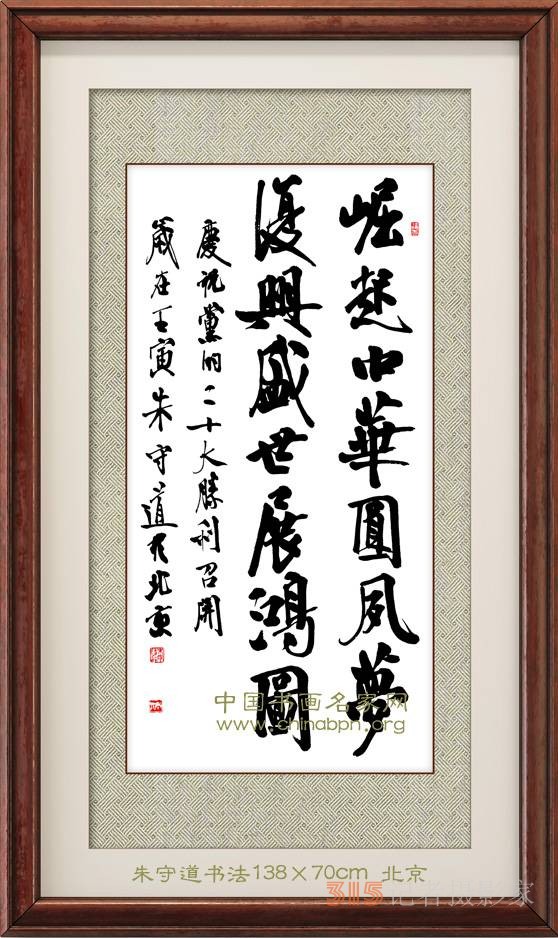 崛起中華圓夙夢
復興盛世展鴻圖
慶祝黨的二十大勝利召開
歲在壬寅朱守道於北京
中国书画名家网
www.chinabpn.org
朱守道书法138×70cm 北京
315记者摄影家